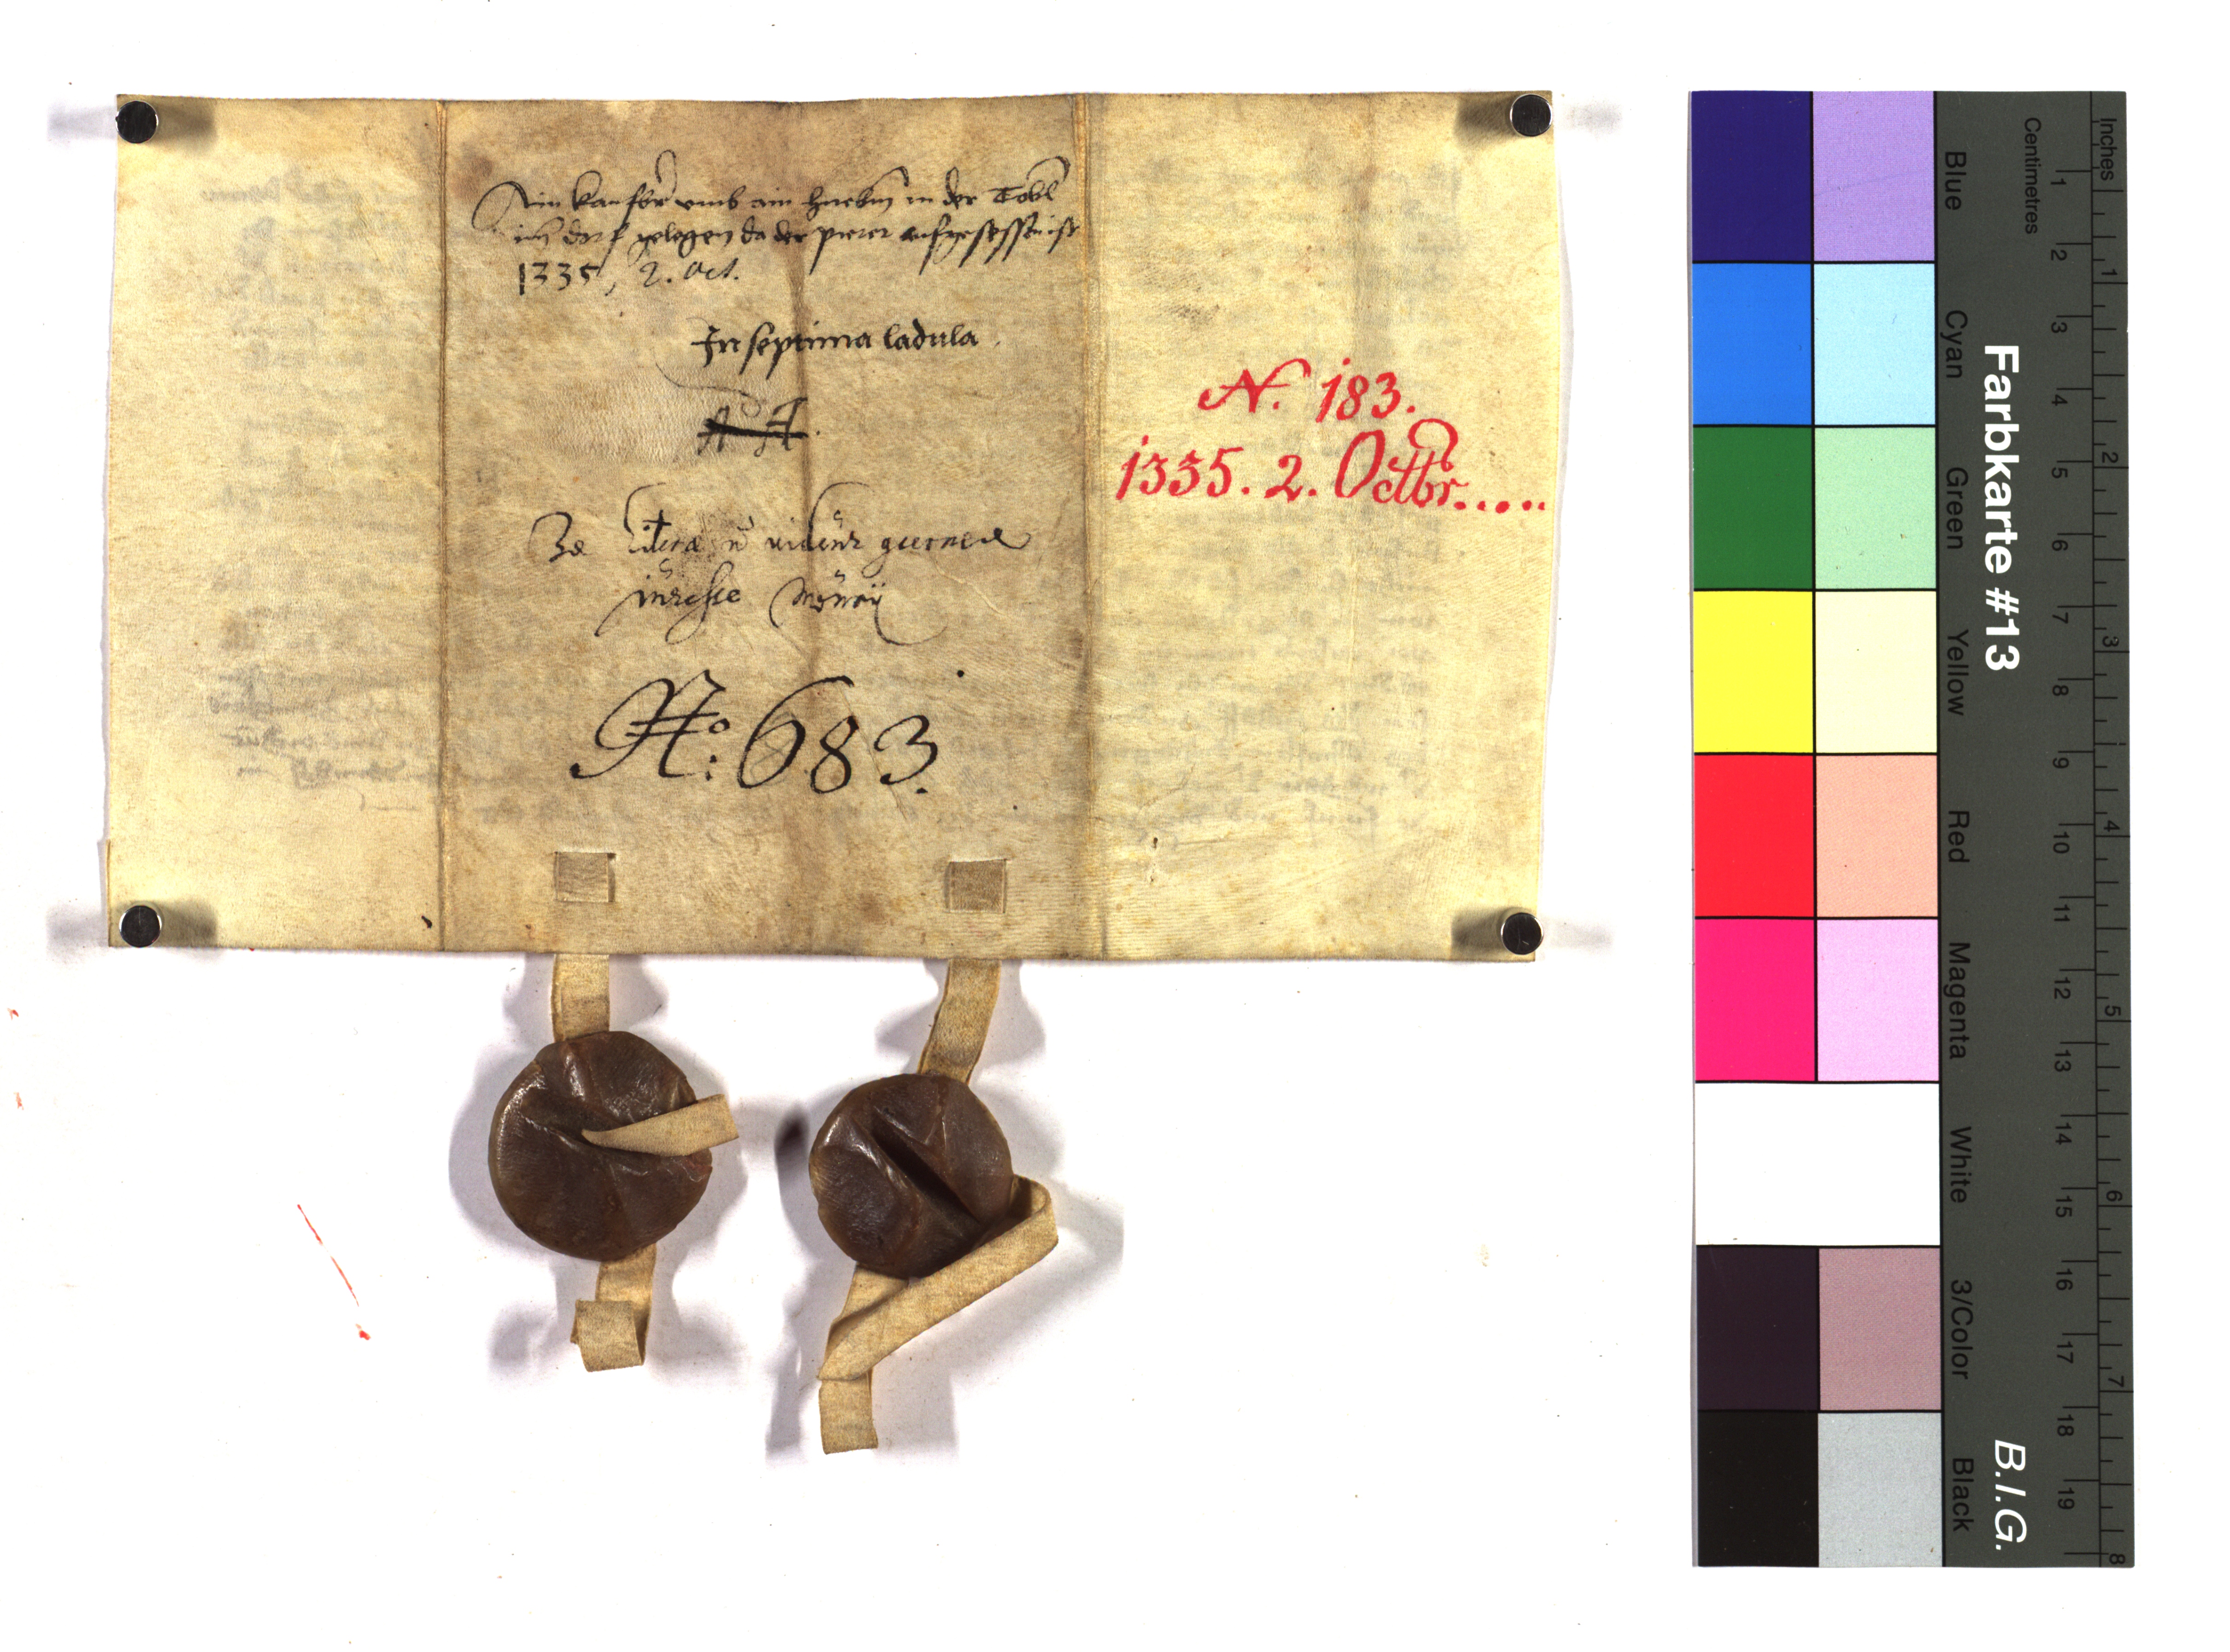 Ain kaufbr̃ umb ain huebm̃ in der Tobl
im dorf gelegen da der pierer aufgesessen ist
1335, 2. Oct.
In septima ladula.
A A.
literæ nõ
No: 683.
N. 183.
1335. 2. Octbr.....
Farbkarte #13
B.I.G.
Inches
Centimetres
1 2 3 4 5 6 7 8 9 10 11 12 13 14 15 16 17 18 19
1 2 3 4 5 6 7 8
Blue
Cyan
Green
Yellow
Red
Magenta
White
3/Color
Black